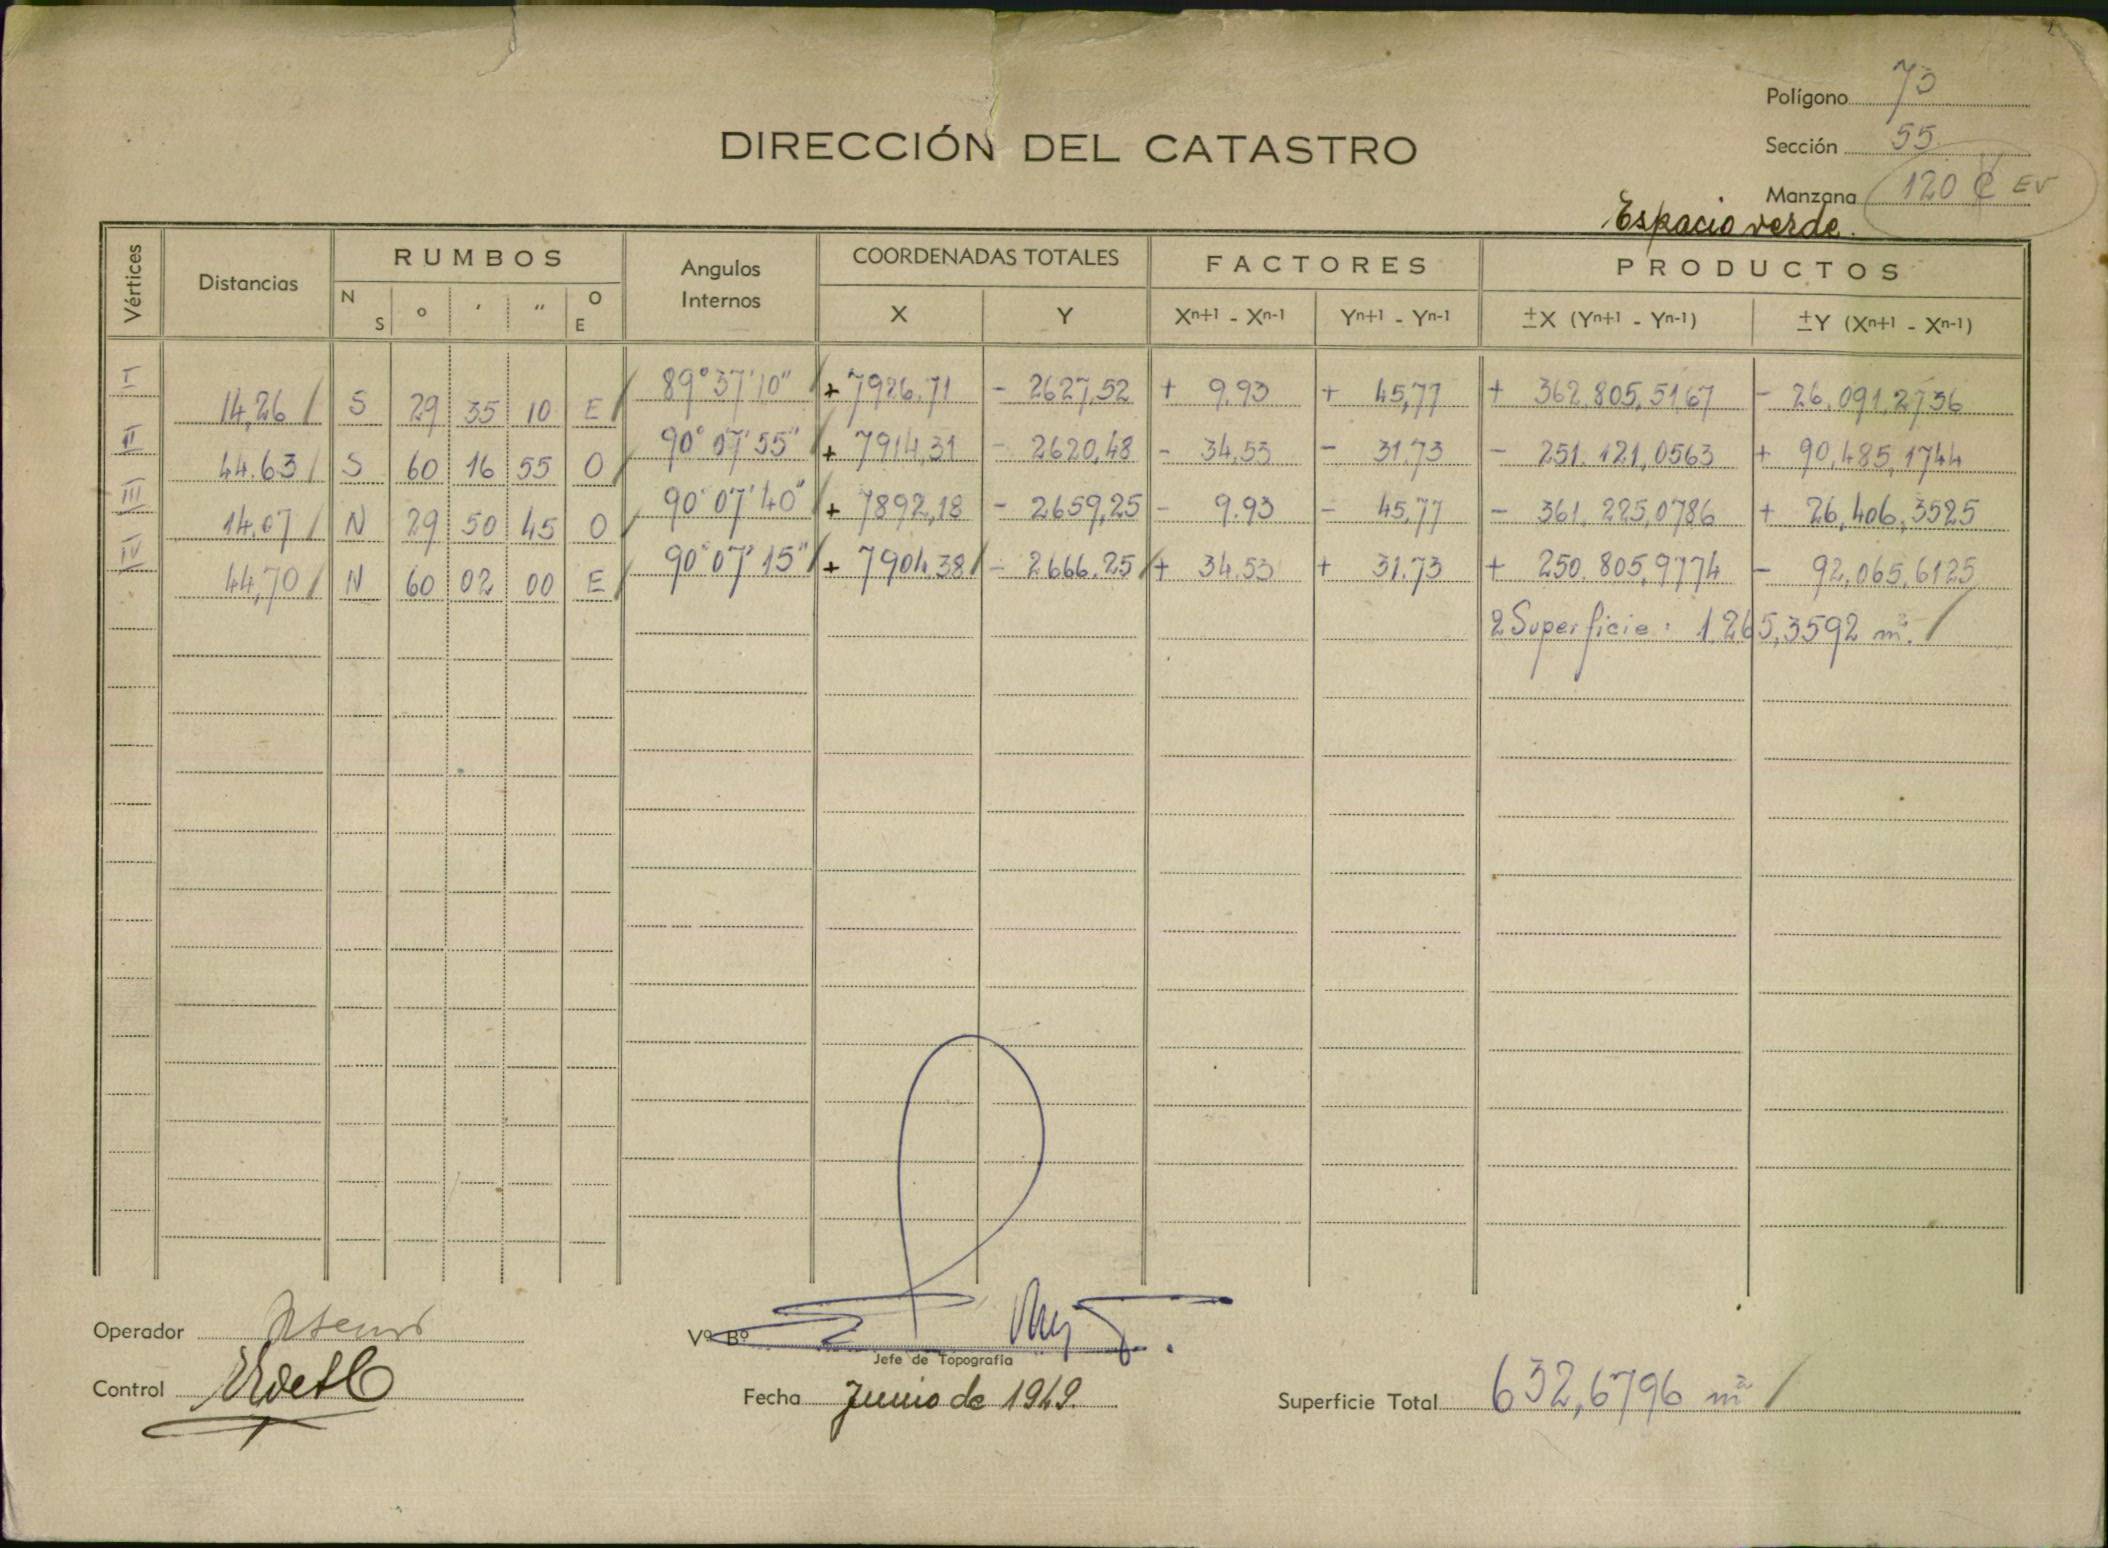 Polígono 73
DIRECCIÓN DEL CATASTRO
Sección 55
Manzana 120 ₡ EV
Espacio verde.
Vértices Distancias RUMBOS Angulos Internos COORDENADAS TOTALES FACTORES PRODUCTOS
N S ° ' " O E X Y Xn+1 - Xn-1 Yn+1 - Yn-1 ±X (Yn+1 - Yn-1) ±Y (Xn+1 - Xn-1)
I 89° 37' 10" + 7926.71 - 2627,52 + 9.93 + 45,77 + 362.805,5167 - 26.091,2736
14,26 S 29 35 10 E
II 90° 07' 55" + 7914,31 - 2620,48 - 34,53 - 31.73 - 251.121,0563 + 90,485,1744
44.63 S 60 16 55 O
III 90° 07' 40" + 7892,18 - 2659,25 - 9.93 - 45,77 - 361.225,0786 + 26,406,3525
14,07 N 29 50 45 O
IV 90° 07' 15" + 7904.38 - 2666.25 + 34.53 + 31.73 + 250.805,9774 - 92.065,6125
44,70 N 60 02 00 E
2 Superficie: 1,265,3592 m².
Operador
Vº Bº
Jefe de Topografía
Control
Fecha Junio de 1949.
Superficie Total 632,6796 m²